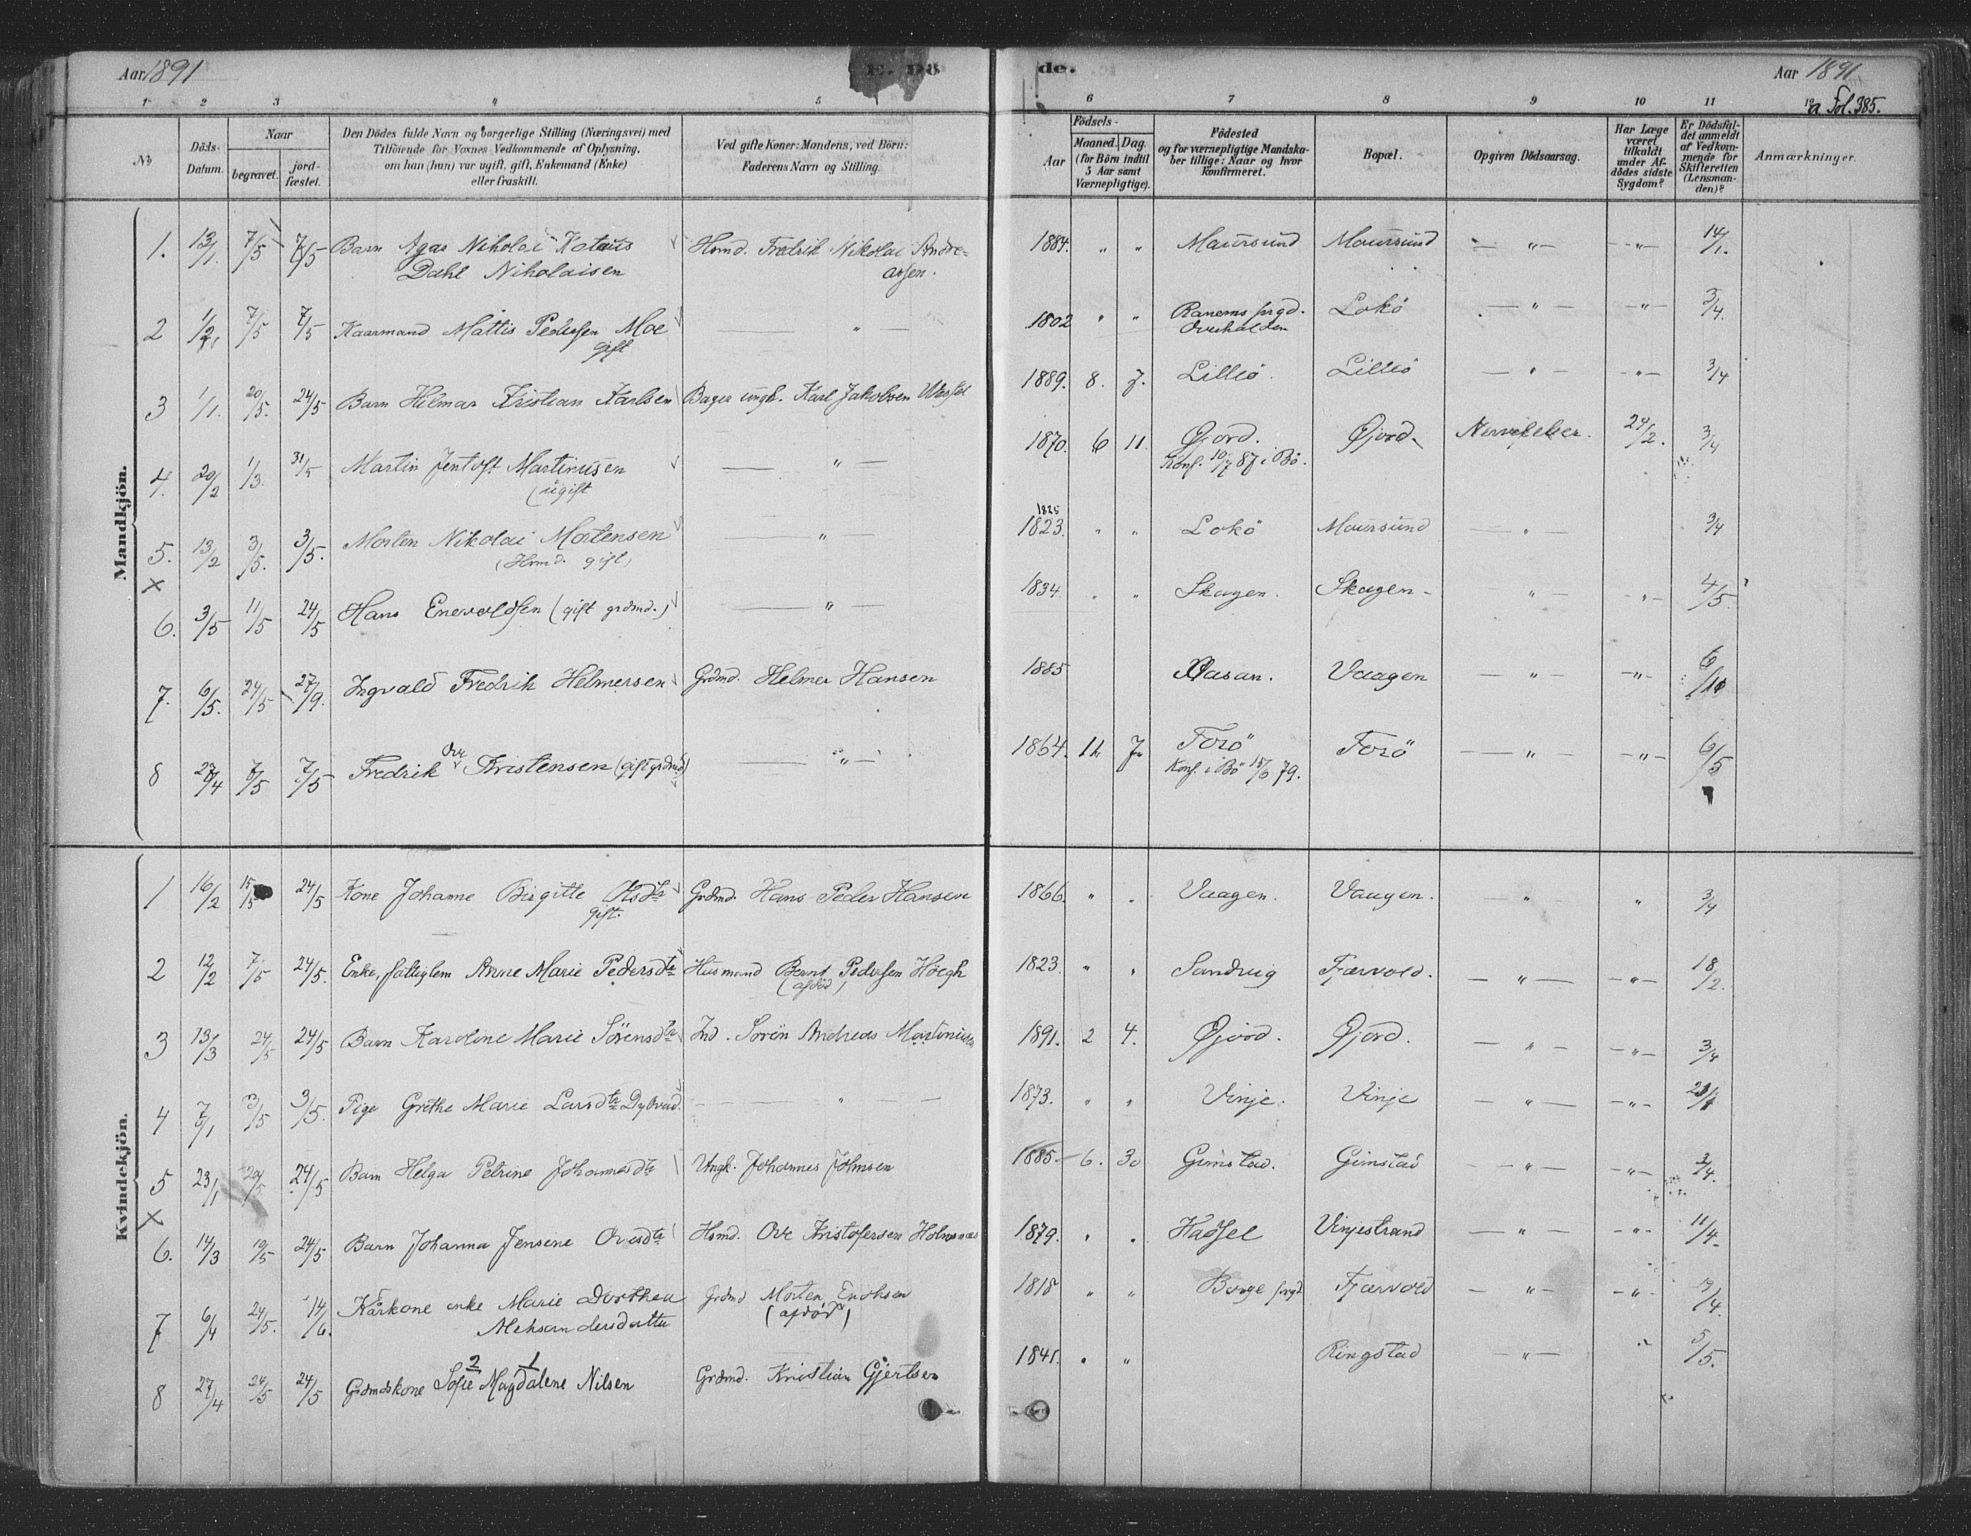 Aar 1891
E. Dö
de.
Aar 1891
a Fol. 385.
1 2 3 4 5 6 7 8 9 10 11
No
Döds-Datum.
Naar
begravet.
jord-fæstet.
Den Dödes fulde Navn og borgerlige Stilling (Næringsvei) med
Tilföiende for Voxnes Vedkommende af Oplysning,
om han (hun) var ugift, gift, Enkemand (Enke)
eller fraskilt.
Ved gifte Koner: Mandens, ved Börn:
Faderens Navn og Stilling.
Födsels-
Aar
Maaned. Dag.
(for Börn indtil
5 Aar samt
Værnepligtige).
Födested
og for værnepligtige Mandska-
ber tillige: Naar og hvor
konfirmeret.
Bopæl.
Opgiven Dödsaarsag.
Har Læge
været
tilkaldt
under Af-
dödes sidste
Sygdom?
Er Dödsfal-
det anmeldt
af Vedkom-
mende for
Skifteretten
(Lensman-
den)?
Anmærkninger.
Mandkjön.
1. 13/1. 7/5 7/5 Barn Agas Nikolai Dahl Nikolaisen Hsmd. Fredrik Nikolai Andreassen. 1884. " " Maursund Maursund — " — — " — 14/1.
2 7/5 7/5 Kaarmand Mattis Pedersen Moe gift — " — 1802 " " Ranems prgd. Overhalden Lokö — " — — " — 3/4.
3 1/1. 20/5. 24/5 Barn Hilmar Kristian Karlsen Bager ungk. Karl Jakobsen 1889. 8. 7. Lillö. Lillö — " — — " — 3/4
4. 20/2 1/3. 31/5 Martin Jentoft Martinusen (ugift — " — 1870. 6 11. Øjord. Konf. 10/7 87 i Bö. Øjord. Nervefeber. 24/2. 3/4
5. 13/2 3/5. 3/5. Morten Nikolai Mortensen (Hsmd. gift) — " — 1825 1823. " " Lokö Maursund — " — 3/4
× 6. 3/5 11/5 24/5 Hans Enevoldsen (gift grdmd.) — " — 1834 " " Skagen. Skagen — " — — " — 4/5
7. 6/5. 24/5 27/9. Ingvald Fredrik Helmersen Grdmd. Helmer Hansen 1885 Aasan. Vaagen — " — — " —
8 7/5 7/5 Fredrik Ove Kristensen (gift grdmd) — " — 1864. 12 7. Forö Konf. i Bö 15/6 79. Forö — " — — " — 6/5
Kvindekjön.
1 16/2 15/5 24/5 Kone Johanne Birgitte Olsdtr gift. Grdmd. Hans Peder Hansen 1866. " " Vaagen. Vaagen. — " — " 3/4
2 12/2 7/5 24/5. Enke, fattiglem Anne Marie Pedersdtr Husmand Bernt Pedersen Höegh (afdöd) 1823. " " Sandvig Fjærvold. — " — — " — 18/2.
3 13/3 24/5 24/5 Barn Karoline Marie Sörensdtr Ind. Sörén Andreas Martinussen 1891. 2 4. Øjord. Øjord. — " — — " — 3/4
4 3/5 3/5. Pige Grethe Marie Larsdtr — " — 1873. " " Vinje. Vinje — " — — " —
5 23/1 20/5 24/5 Barn Helga Petrine Johannesdtr Ungk. Johannes Johnsen 1885 6. 30 Gimstad. Gimstad — " — — " — 3/4.
× 6. 14/3 10/5 24/5 Barn Johanna Jensine Ovesdtr Hsmd. Ove Kristofersen Holmsnes 1879. " " Hadsel Vinjestrand — " — — " — 11/4.
7 6/4 24/5. 14/6. Kårkone enke Marie Dorthea Aleksandersdatter Grdmd Morten Enoksen (afdöd) 1818 " " Borge prgd. Fjærvold — " — — " — 3/4.
8 27/4 24/5 24/5 Grdmdskone Sofie 2 Magdalene 1 Nilsen Grdmd. Kristian Gjertsen 1841. " " Ringstad — " — 5/5.